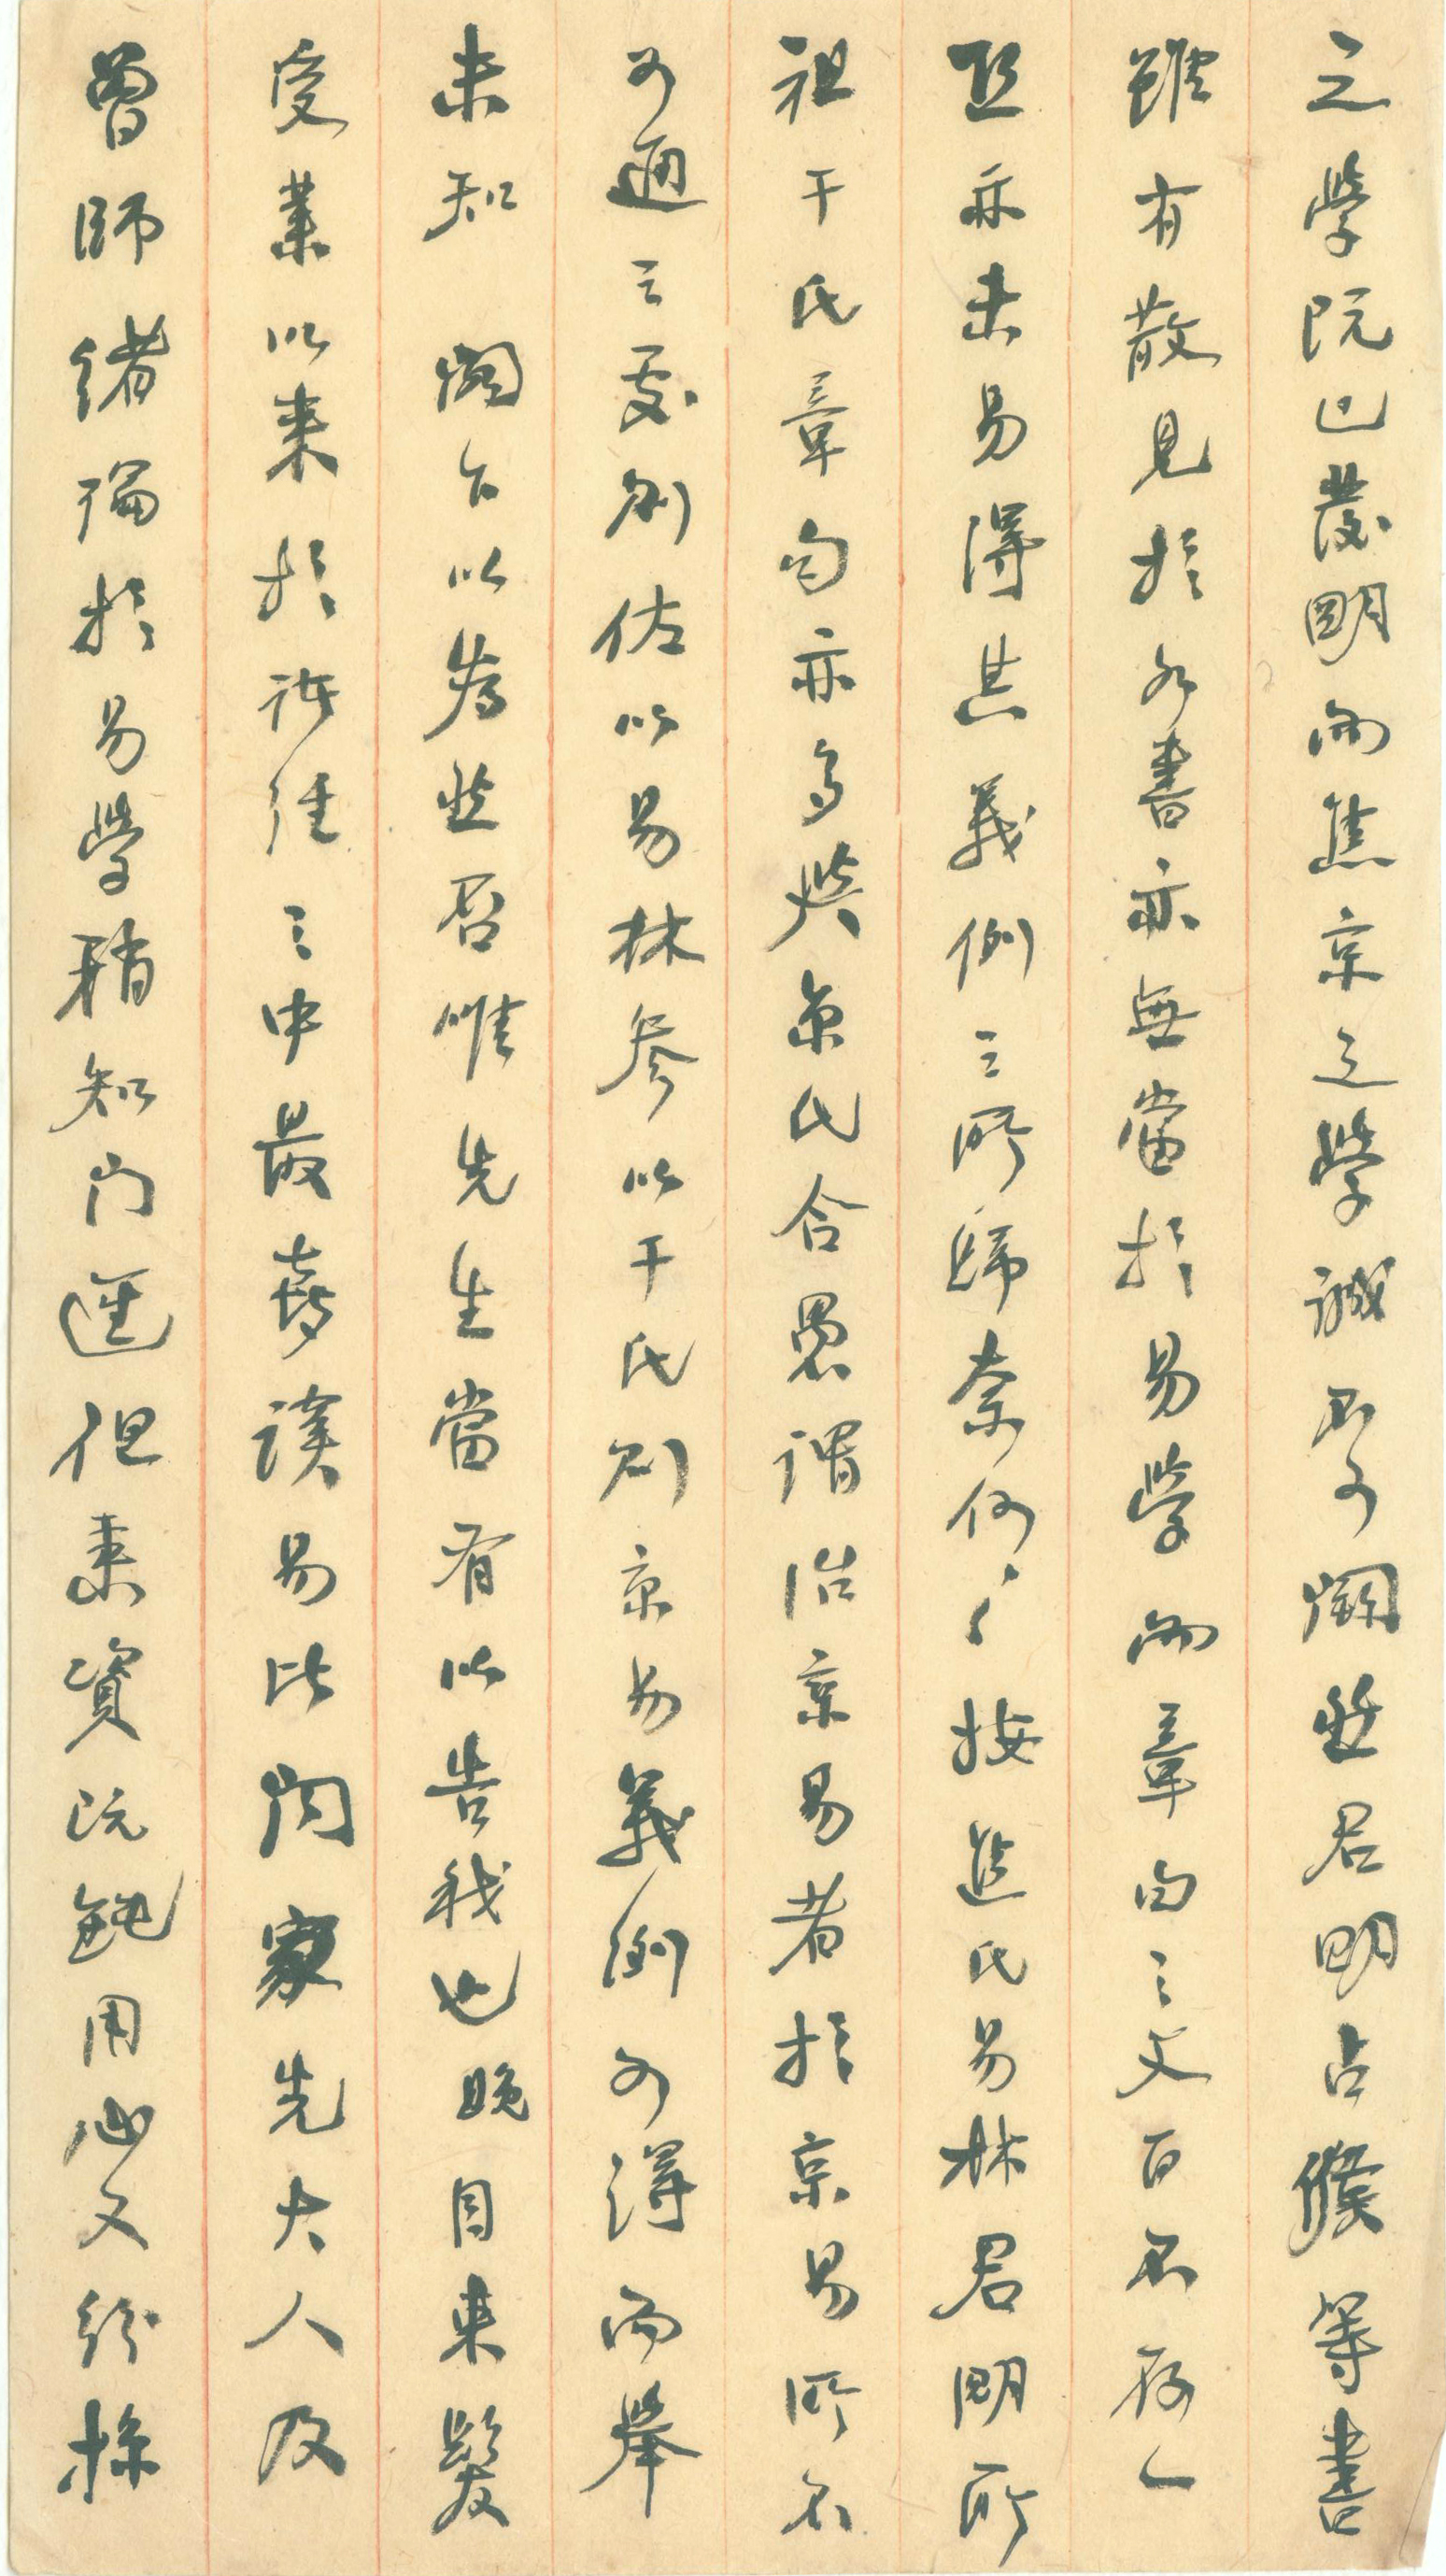 之學既已發明而焦京之學誠不可闕然君明占候等書
雖有散見於外書亦無當於易學而章句之文百不存一
延亦未易得其義例之所歸奈何〻按焦氏易林君明所
祖干氏章句亦多與京氏合愚謂治京易者於京易所不
可通之處則佐以易林參以干氏則京易義例可得而舉
未知 閣下以為然否惟先生當有以告我也晚自束髮
受業以來於諸經之中最喜讀易此間家先大人及
曾師緒瑞於易學稍知門徑但秉資既鈍用心又紛操